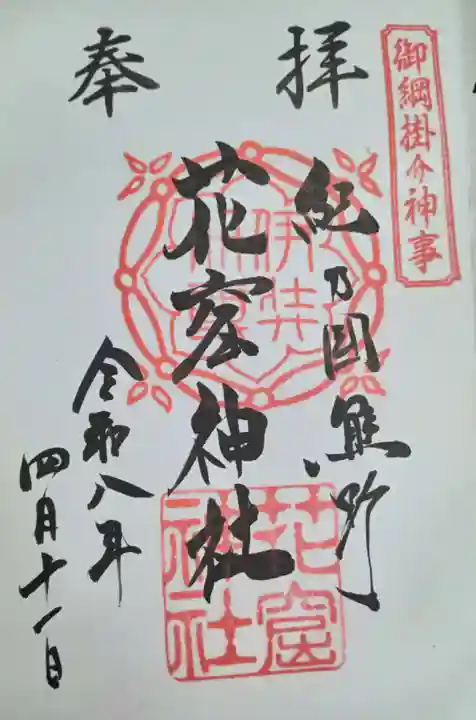 御綱掛け神事
奉拝
紀乃國熊野
花窟神社
令和八年
四月十一日
花窟
神社